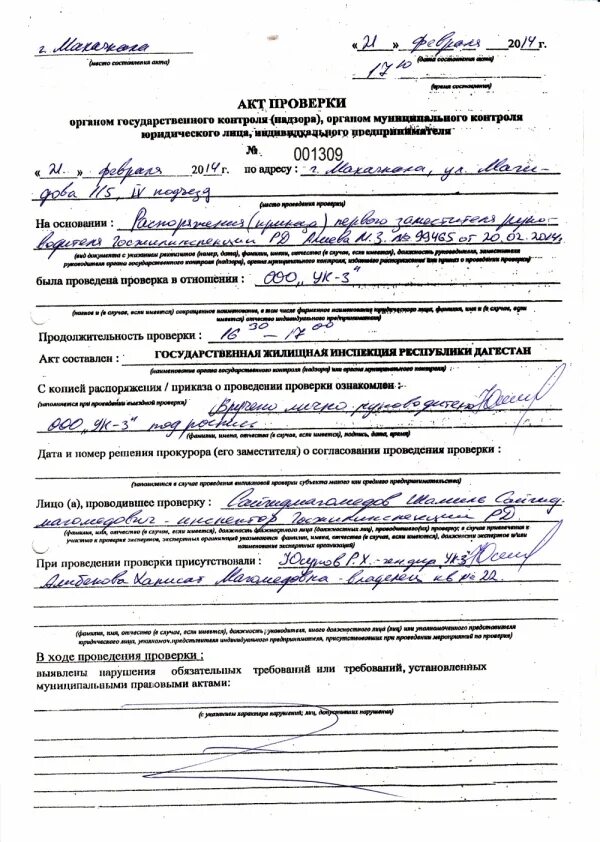 г. Махачкала «21» февраля 2014 г.
(место составления акта) (дата составления акта)
17 10
(время составления)
АКТ ПРОВЕРКИ
органом государственного контроля (надзора), органом муниципального контроля
юридического лица, индивидуального предпринимателя
№ 001309
«21» февраля 2014 г. по адресу: г. Махачкала, ул. Маги-
дова 115, IV подъезд
(место проведения проверки)
На основании: Распоряжения (приказа) первого заместителя руко-
водителя Госжилинспекции РД Алиева М.З. № 99465 от 20.02.2014г.
(вид документа с указанием реквизитов (номер, дата), фамилии, имени, отчества (в случае, если имеется), должность руководителя, заместителя
руководителя органа государственного контроля (надзора), органа муниципального контроля, издавшего распоряжение или приказ о проведении проверки)
была проведена проверка в отношении: ООО „УК-3"
(полное и (в случае, если имеется) сокращенное наименование, в том числе фирменное наименование юридического лица, фамилия, имя и (в случае, если
имеется) отчество индивидуального предпринимателя)
Продолжительность проверки: 16 30 – 17 00
Акт составлен: ГОСУДАРСТВЕННАЯ ЖИЛИЩНАЯ ИНСПЕКЦИЯ РЕСПУБЛИКИ ДАГЕСТАН
(наименование органа государственного контроля (надзора) или органа муниципального контроля)
С копией распоряжения / приказа о проведении проверки ознакомлен:
(заполняется при проведении выездной проверки) Вручено лично руководителю
ООО „УК-3" под роспись
(фамилии, имена, отчества (в случае, если имеется), подпись, дата, время)
Дата и номер решения прокурора (его заместителя) о согласовании проведения проверки:
(заполняется в случае проведения внеплановой проверки субъекта малого или среднего предпринимательства)
Лицо (а), проводившее проверку: Сайгидмагомедов Шамиль Сайгид-
магомедович - инспектор Госжилинспекции РД
(фамилия, имя, отчество (в случае, если имеется), должность должностного лица (должностных лиц), проводившего(их) проверку; в случае привлечения к
участию к проверке экспертов, экспертных организаций указываются фамилии, имена, отчества (в случае, если имеется), должности экспертов и/или
наименование экспертных организаций)
При проведении проверки присутствовали: Юсупов Р.Х. - гендир УК-3
Алибекова Хаписат Магомедовна - владелец кв № 22.
(фамилия, имя, отчество (в случае, если имеется), должность руководителя, иного должностного лица (лиц) или уполномоченного представителя
юридического лица, уполномоч. представителя индивидуального предпринимателя, присутствовавших при проведении мероприятий по проверке)
В ходе проведения проверки:
выявлены нарушения обязательных требований или требований, установленных
муниципальными правовыми актами:
(с указанием характера нарушений; лиц, допустивших нарушения)